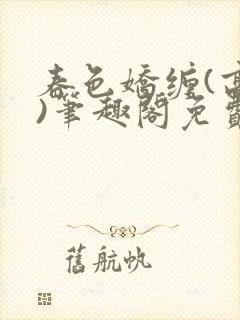 春色嬌纏(高
)筆趣閣免費
舊航帆